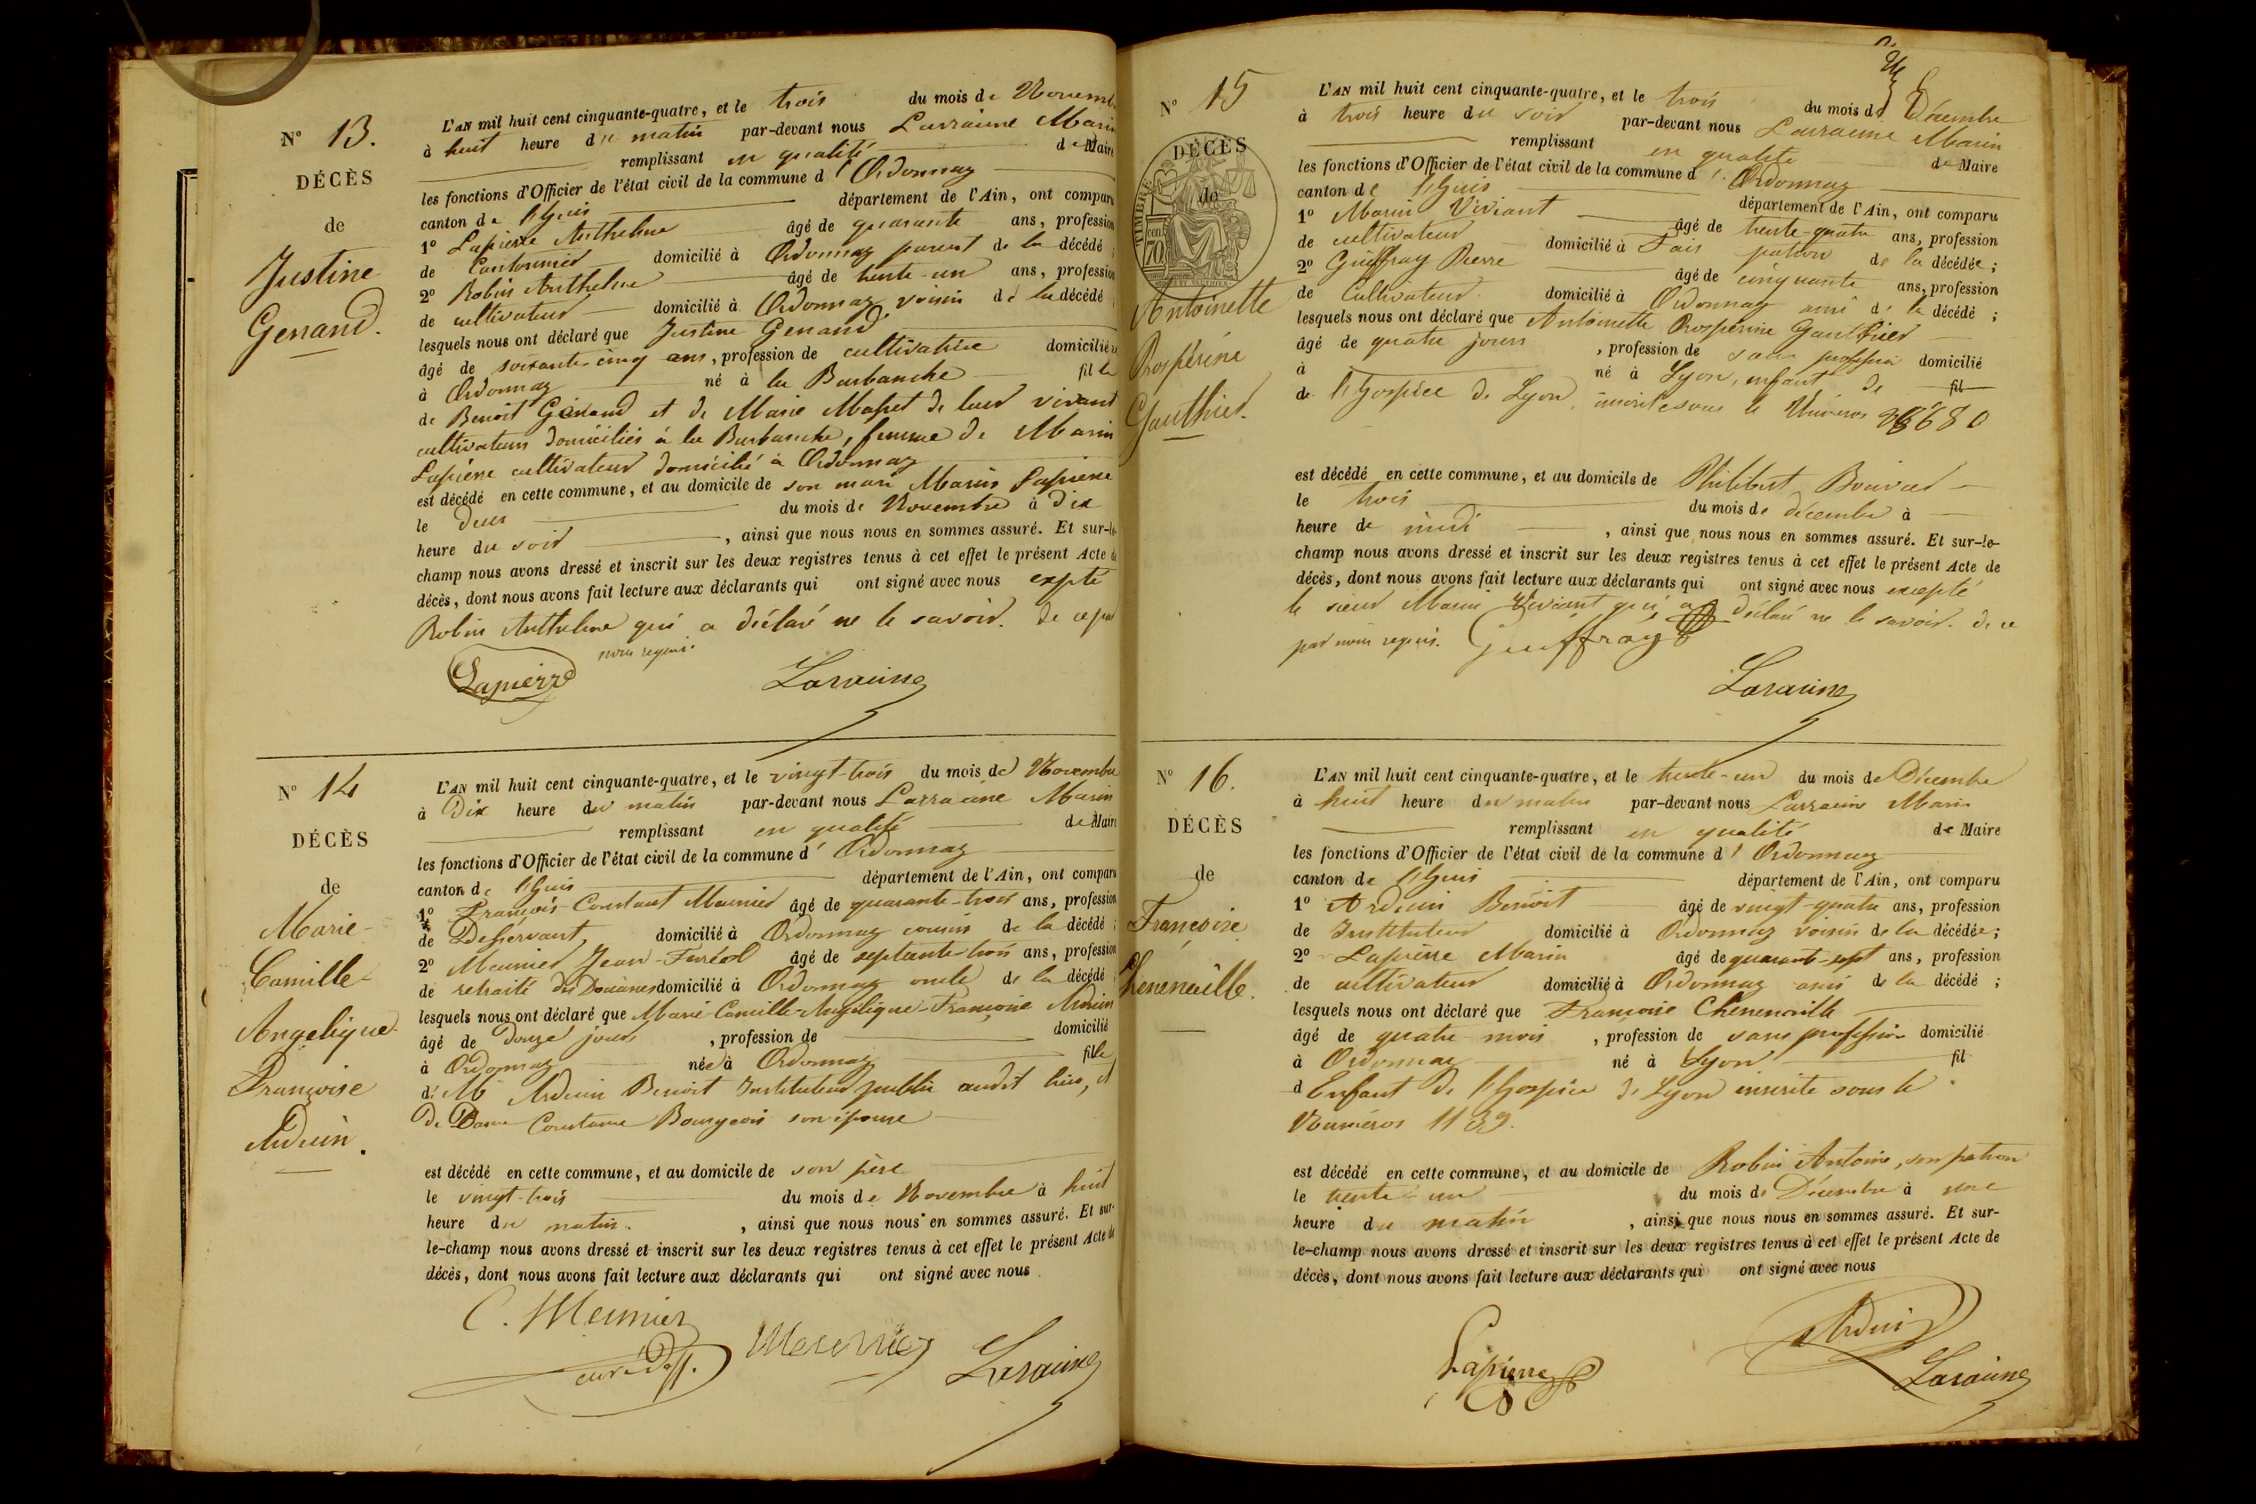 N° 13.
DÉCÈS
de
Justine
Genand.
L'AN mil huit cent cinquante-quatre, et le trois du mois de Novemb
à huit heure du matin par-devant nous Larraine Marin
remplissant en qualité de Maire
les fonctions d'Officier de l'état civil de la commune d'Ordonnaz
canton de l'huis département de l'Ain, ont comparu
1° Lapierre Anthelme âgé de quarante ans, profession
de Cantonnier domicilié à Ordonnaz parent de la décédé ;
2° Robin Anthelme âgé de trente-un ans, profession
de cultivateur domicilié à Ordonnaz, voisin de la décédé ;
lesquels nous ont déclaré que Justine Genand,
âgé de soixante-cinq ans, profession de cultivatrice domicilié
à Ordonnaz né à la Burbanche fille
de Benoit Génand et de Marie Mapet de leur vivant
cultivateurs domiciliés à la Burbanche, femme de Marin
Lapierre cultivateur domicilié à Ordonnaz
est décédé en cette commune, et au domicile de son mari Marin Lapierre
le deux du mois de Novembre à dix
heure du soir, ainsi que nous nous en sommes assuré. Et sur-le-
champ nous avons dressé et inscrit sur les deux registres tenus à cet effet le présent Acte de
décès, dont nous avons fait lecture aux déclarants qui ont signé avec nous expté
Robin Anthelme qui a déclaré ne le savoir. de ce par
nous requis.
Lapierre Laraine
N° 14
DÉCÈS
de
Marie-
Camille-
Angelique-
Françoise
Arduin.
L'AN mil huit cent cinquante-quatre, et le vingt-trois du mois de Novembre
à Dix heure du matin par-devant nous Larraine Marin
remplissant en qualité de Maire
les fonctions d'Officier de l'état civil de la commune d' Ordonnaz
canton de l'huis département de l'Ain, ont comparu
1° François-Constant Meunier âgé de quarante-trois ans, profession
de Desservant, domicilié à Ordonnaz cousin de la décédé ;
2° Meunier Jean-Ferréol âgé de septante-trois ans, profession
de retraité des Douanes domicilié à Ordonnaz oncle de la décédé
lesquels nous ont déclaré que Marie-Camille-Angélique-Françoise Arduin
âgé de Douze jours, profession de domicilié
à Ordonnaz née à Ordonnaz fille
de M Arduin Benoit Instituteur public audit lieu, et
de Dame Constance Bourgeois son épouse
est décédé en cette commune, et au domicile de son père
le vingt-trois du mois de Novembre à huit
heure du matin., ainsi que nous nous en sommes assuré. Et sur-
le-champ nous avons dressé et inscrit sur les deux registres tenus à cet effet le présent Acte de
décès, dont nous avons fait lecture aux déclarants qui ont signé avec nous
C. Meunier
curé dess. Meunier Laraine
N° 15
DÉCÈS
de
TIMBRE
70
Antoinette
Prospérine
Gauthier.
L'AN mil huit cent cinquante-quatre, et le trois du mois de Décembre
à trois heure du soir par-devant nous Larraine Marin
remplissant en qualité de Maire
les fonctions d'Officier de l'état civil de la commune d'Ordonnaz
canton de l'huis département de l'Ain, ont comparu
1° Marin Viviant âgé de trente-quatre ans, profession
de cultivateur domicilié à patron de la décédée ;
2° Gueffray Pierre âgé de cinquante ans, profession
de Cultivateur domicilié à Ordonnaz ami de la décédé ;
lesquels nous ont déclaré que Antoinette Prosperine Gauthier
âgé de quatre jours, profession de sans profession domicilié
à né à Lyon, enfant de fil
de l'hospice de Lyon, inscrite sous le Numéros
est décédé en cette commune, et au domicile de Philibert Bouvier
le trois du mois de décembre à
heure de midi, ainsi que nous nous en sommes assuré. Et sur-le-
champ nous avons dressé et inscrit sur les deux registres tenus à cet effet le présent Acte de
décès, dont nous avons fait lecture aux déclarants qui ont signé avec nous excepté
le sieur Marin Viviant qui a déclaré ne le savoir. de ce
par nous requis. Gueffray
Laraine
N° 16.
DÉCÈS
de
Francoise
Cheneneille.
L'AN mil huit cent cinquante-quatre, et le trente-un du mois de Décembre
à huit heure du matin par-devant nous Larraine Marin
remplissant en qualité de Maire
les fonctions d'Officier de l'état civil de la commune d'Ordonnaz
canton de l'huis département de l'Ain, ont comparu
1° Arduin Benoit âgé de vingt-quatre ans, profession
de Instituteur domicilié à Ordonnaz voisin de la décédée ;
2° Lapierre Marin âgé de quarante-sept ans, profession
de cultivateur domicilié à Ordonnaz ami de la décédé ;
lesquels nous ont déclaré que Françoise Cheneneille
âgé de quatre mois, profession de sans profession domicilié
à Ordonnaz né à Lyon fil
d Enfant de l'hospice de Lyon inscrite sous le
Numéros 1139.
est décédé en cette commune, et au domicile de Robin Antoine, son patron
le trente-un du mois de Décembre à une
heure du matin, ainsi que nous nous en sommes assuré. Et sur-
le-champ nous avons dressé et inscrit sur les deux registres tenus à cet effet le présent Acte de
décès, dont nous avons fait lecture aux déclarants qui ont signé avec nous
Lapierre Arduin
Laraine